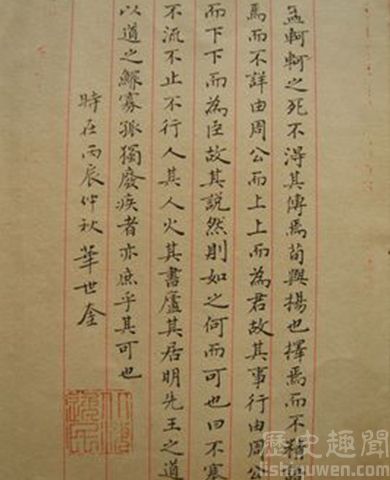 孟軻軻之死不得其傳焉荀與揚也擇焉而不精
焉而不詳由周公而上上而為君故其事行由周公
而下下而為臣故其説然則如之何而可也曰不塞
不流不止不行人其人火其書廬其居明先王之道
以道之鰥寡孤獨廢疾者亦庶乎其可也
時在丙辰仲秋華世奎
歷史趣聞
lishiquwen.com